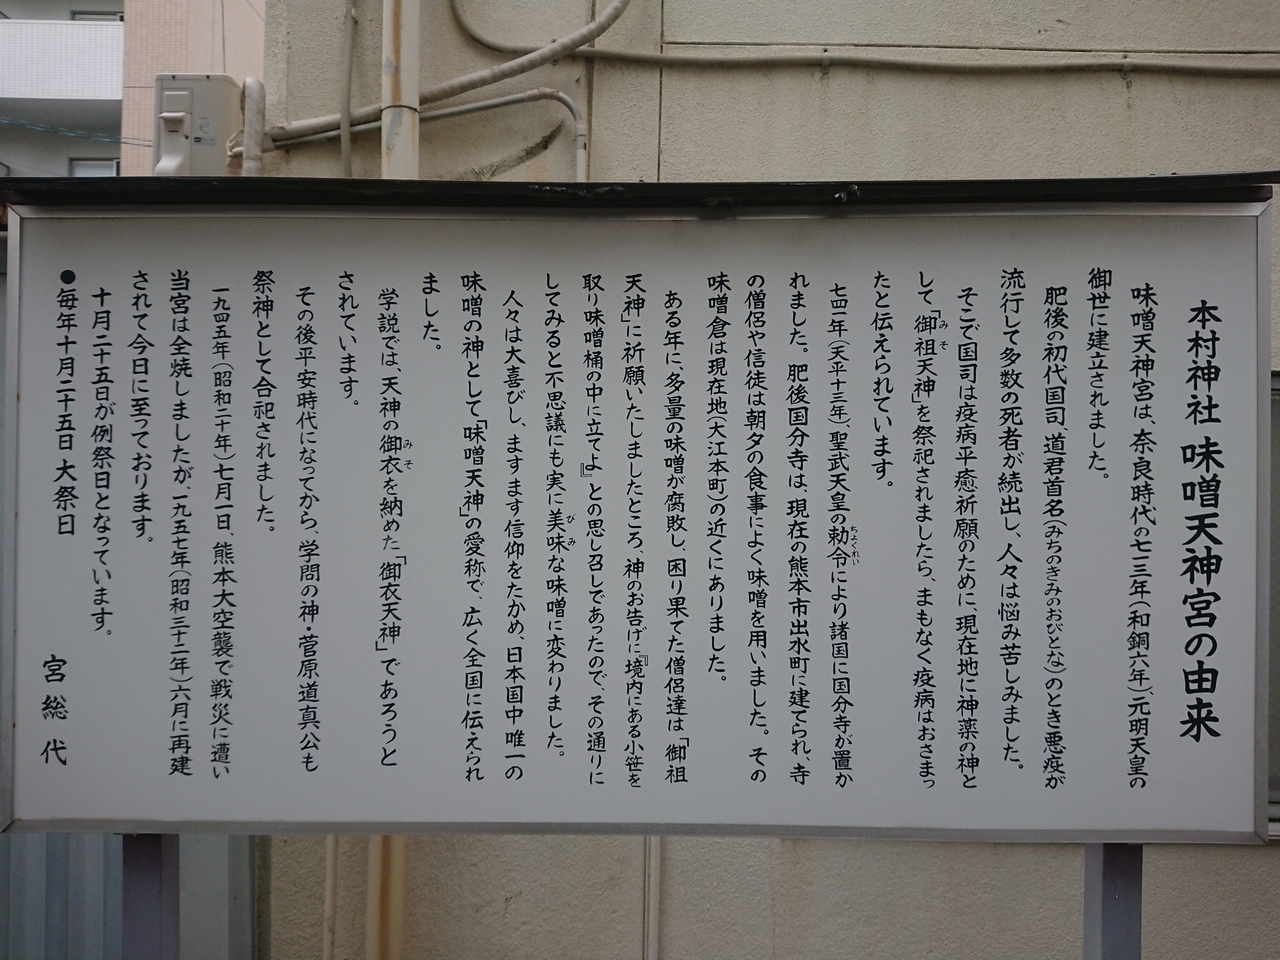 本村神社 味噌天神宮の由来
味噌天神宮は、奈良時代の七一三年(和銅六年)、元明天皇の
御世に建立されました。
肥後の初代国司、道君首名(みちのきみのおびとな)のとき悪疫が
流行して多数の死者が続出し、人々は悩み苦しみました。
そこで国司は疫病平癒祈願のために、現在地に神薬の神と
して「御祖天神」を祭祀されましたら、まもなく疫病はおさまっ
みそ
たと伝えられています。
七四一年(天平十三年)、聖武天皇の勅令により諸国に国分寺が置か
ちょくれい
れました。肥後国分寺は、現在の熊本市出水町に建てられ、寺
の僧侶や信徒は朝夕の食事によく味噌を用いました。その
味噌倉は現在地(大江本町)の近くにありました。
ある年に、多量の味噌が腐敗し、困り果てた僧侶達は「御祖
天神」に祈願いたしましたところ、神のお告げに『境内にある小笹を
取り味噌桶の中に立てよ』との思し召しであったので、その通りに
してみると不思議にも実に美味な味噌に変わりました。
びみ
人々は大喜びし、ますます信仰をたかめ、日本国中唯一の
味噌の神として「味噌天神」の愛称で、広く全国に伝えられ
ました。
学説では、天神の御衣を納めた「御衣天神」であろうと
みそ
されています。
その後平安時代になってから、学問の神・菅原道真公も
祭神として合祀されました。
一九四五年(昭和二十年)七月一日、熊本大空襲で戦災に遭い
当宮は全焼しましたが、一九五七年(昭和三十二年)六月に再建
されて今日に至っております。
十月二十五日が例祭日となっています。
●毎年十月二十五日 大祭日
宮総代